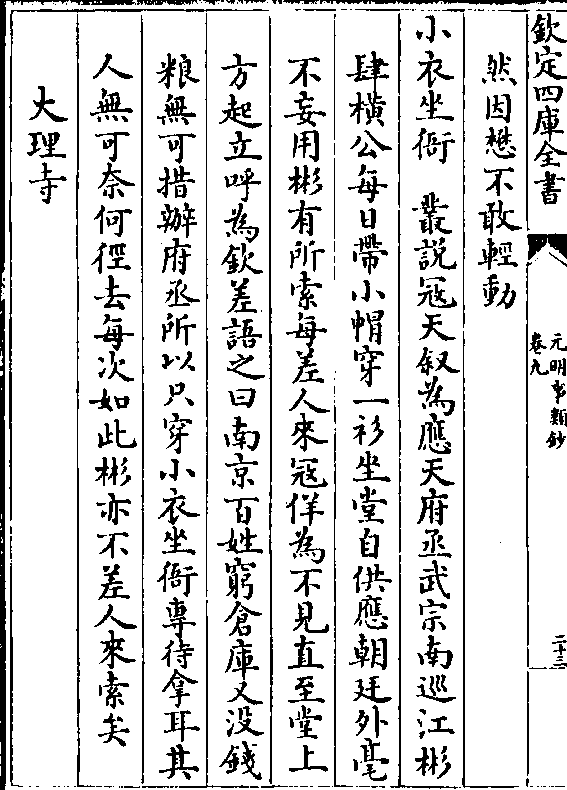 欽定四庫全書
元明事類鈔
卷九
二十三
然因懋不敢輕動
小衣坐衙　叢説冦天叙為應天府丞武宗南巡江彬
肆橫公每日帶小帽穿一衫坐堂自供應朝廷外毫
不妄用彬有所索每差人來冦佯為不見直至堂上
方起立呼為欽差語之曰南京百姓窮倉庫又没錢
粮無可措辦府丞所以只穿小衣坐衙專待拿耳其
人無可奈何徑去每次如此彬亦不差人來索矣
大理寺